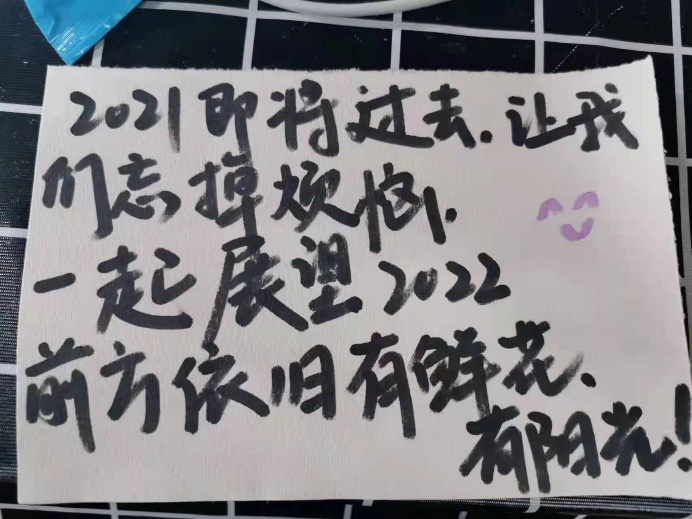 2021即将过去.让我
们忘掉烦恼.
一起展望2022
前方依旧有鲜花、
有阳光!